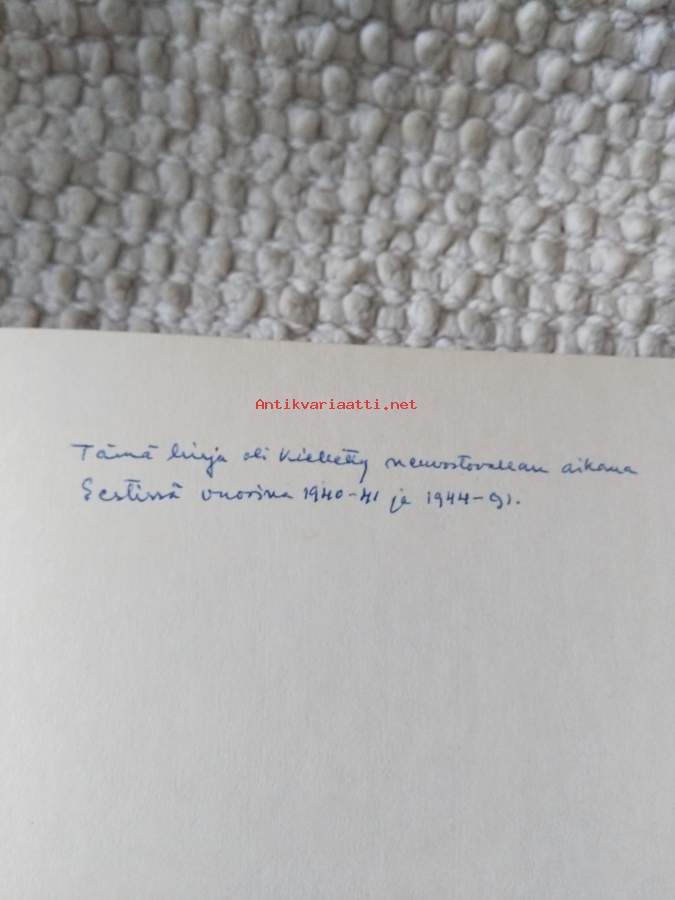 Antikvariaatti.net
Tämä kirja oli kielletty neuvostovallan aikana
Eestissä vuosina 1940-41 ja 1944-91.